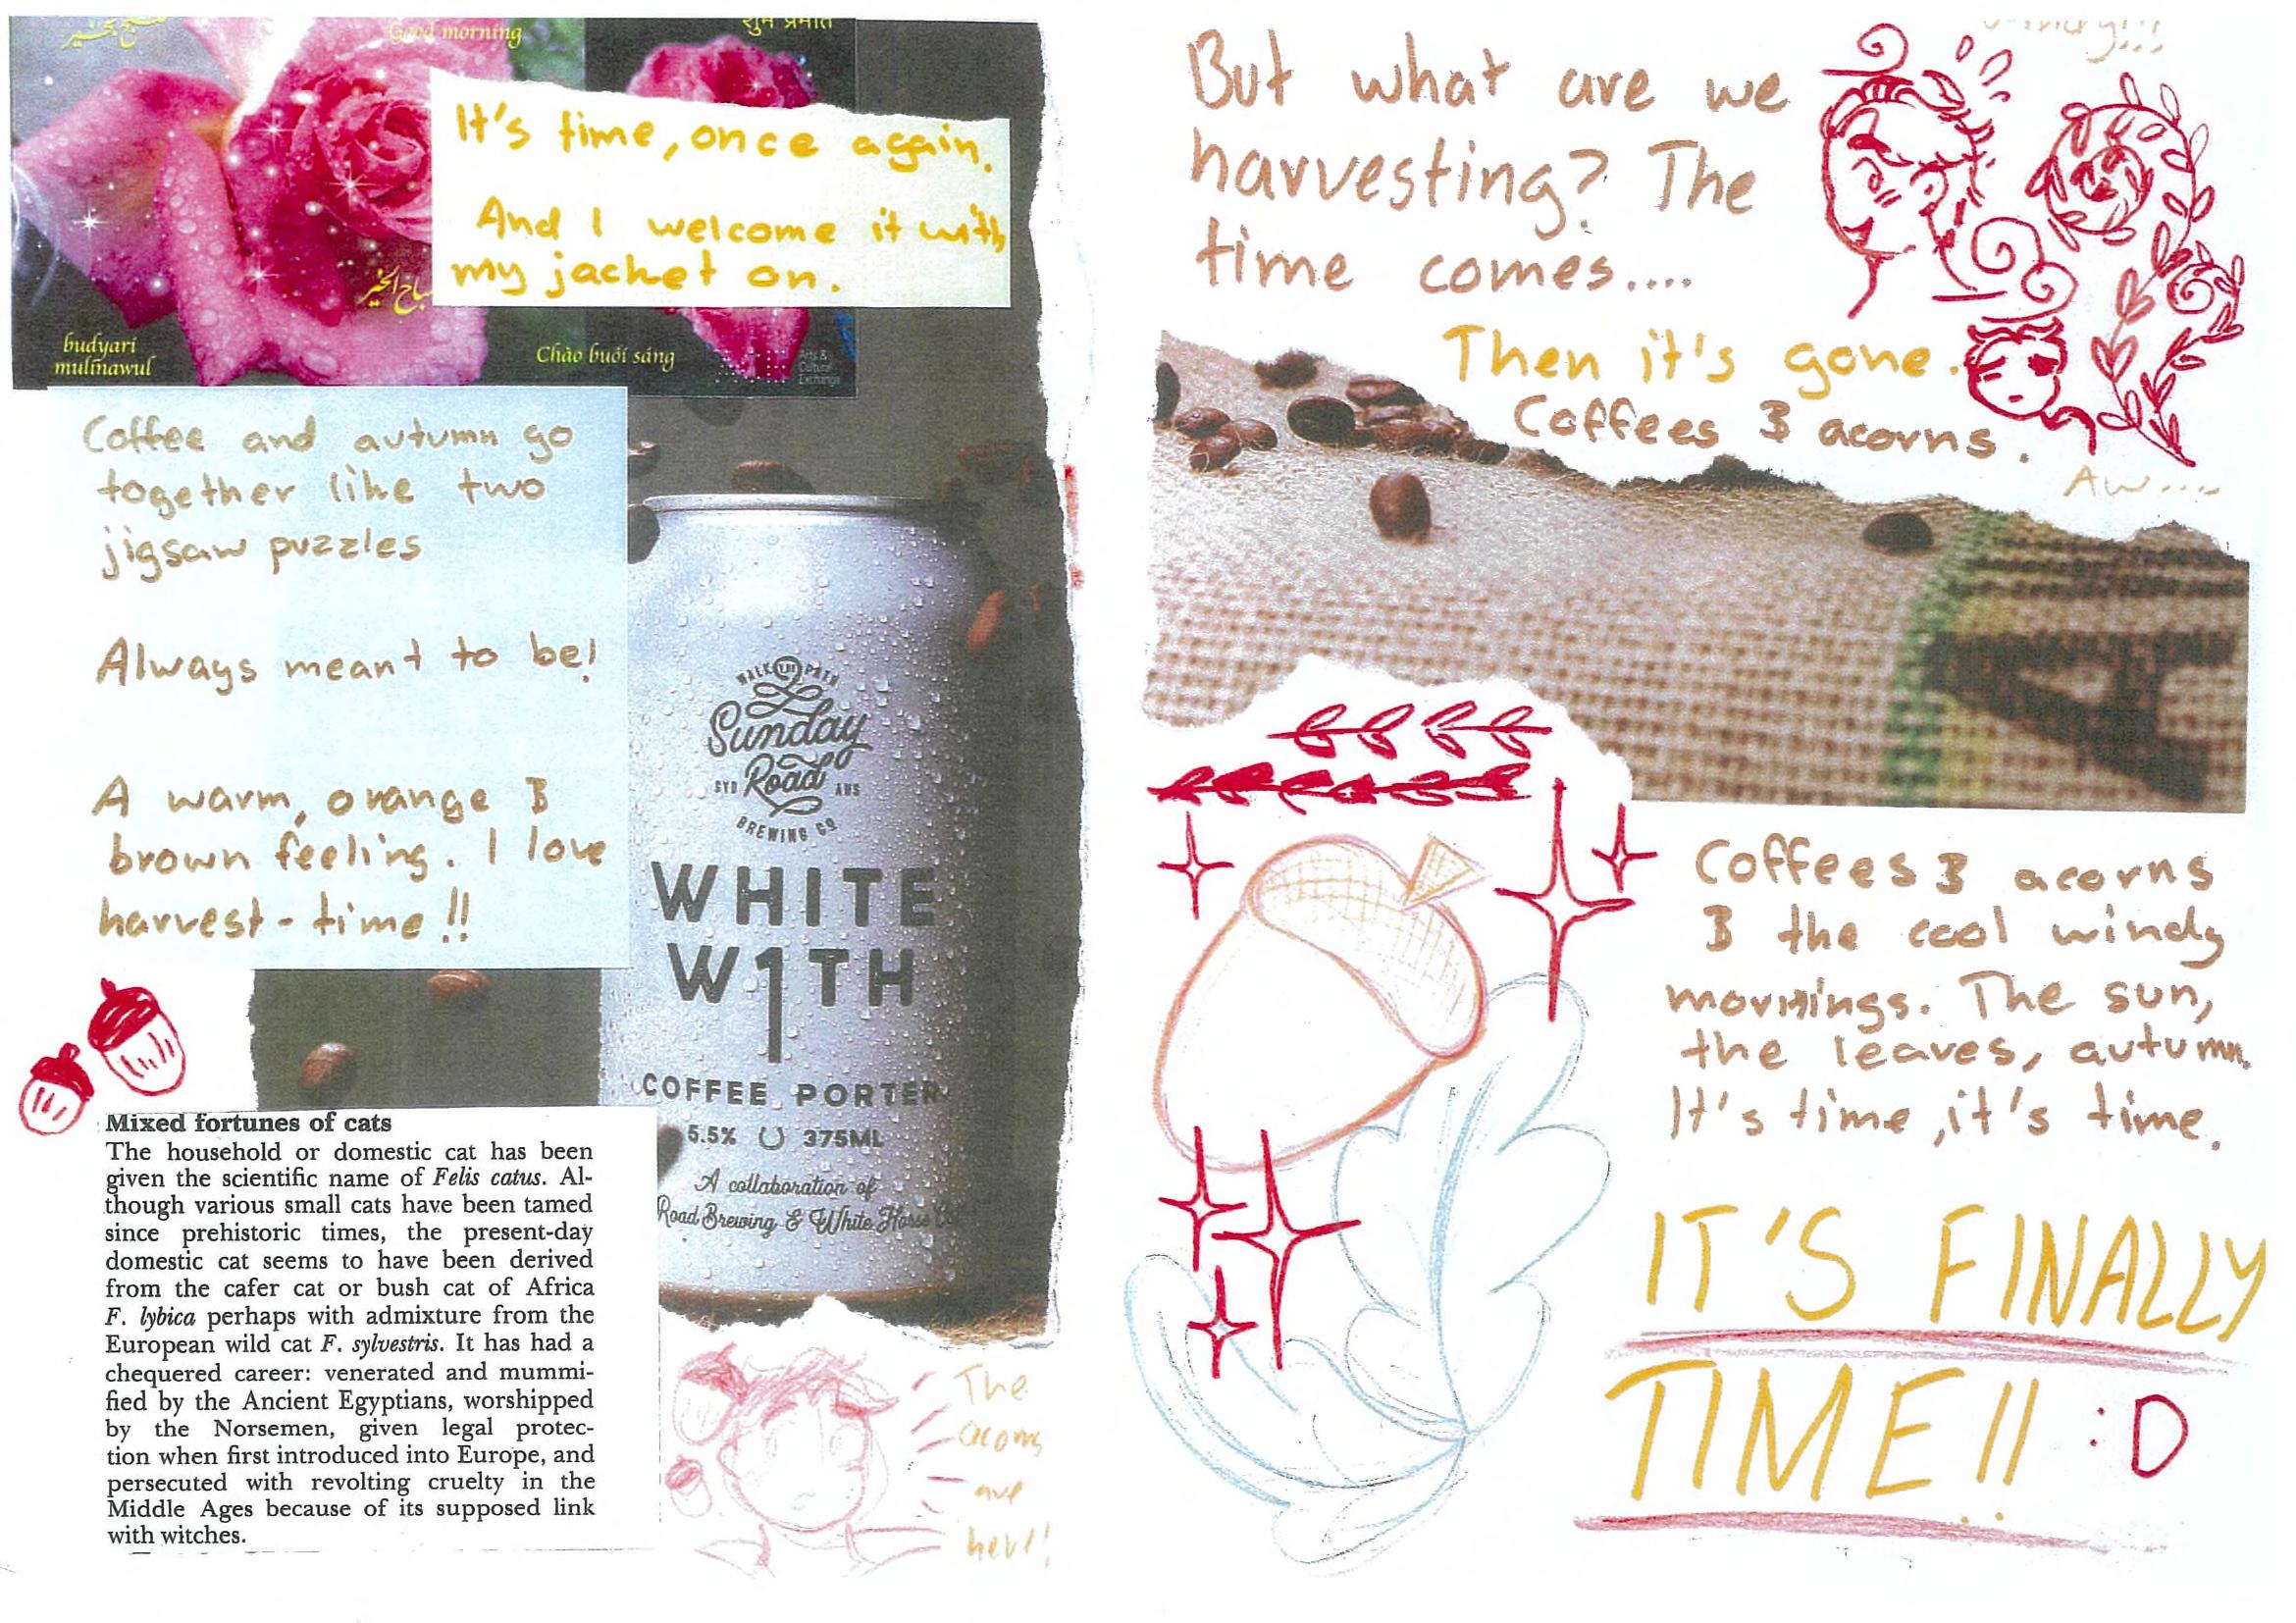 Good morning
शुभ प्रभात
It's time, once again.
And I welcome it with
my jacket on.
budyari
mulinawul
Chào buổi sáng
Arts &
Cultural
Exchange
Coffee and autumn go
together like two
jigsaw puzzles
Always meant to be!
A warm, orange &
brown feeling. I love
harvest-time!!
WALK THE PATH
Sunday
Road
SYD AUS
BREWING CO
WHITE
W1TH
COFFEE PORTER
5.5% 375ML
A collaboration of
Road Brewing & White Horse
Mixed fortunes of cats
The household or domestic cat has been
given the scientific name of Felis catus. Al-
though various small cats have been tamed
since prehistoric times, the present-day
domestic cat seems to have been derived
from the cafer cat or bush cat of Africa
F. lybica perhaps with admixture from the
European wild cat F. sylvestris. It has had a
chequered career: venerated and mummi-
fied by the Ancient Egyptians, worshipped
by the Norsemen, given legal protec-
tion when first introduced into Europe, and
persecuted with revolting cruelty in the
Middle Ages because of its supposed link
with witches.
The
acorns
are
here!
But what are we
harvesting? The
time comes....
Then it's gone.
Coffees & acorns.
Aw....
A
Coffees & acorns
& the cool windy
mornings. The sun,
the leaves, autumn.
It's time, it's time.
IT'S FINALLY
TIME!! :D